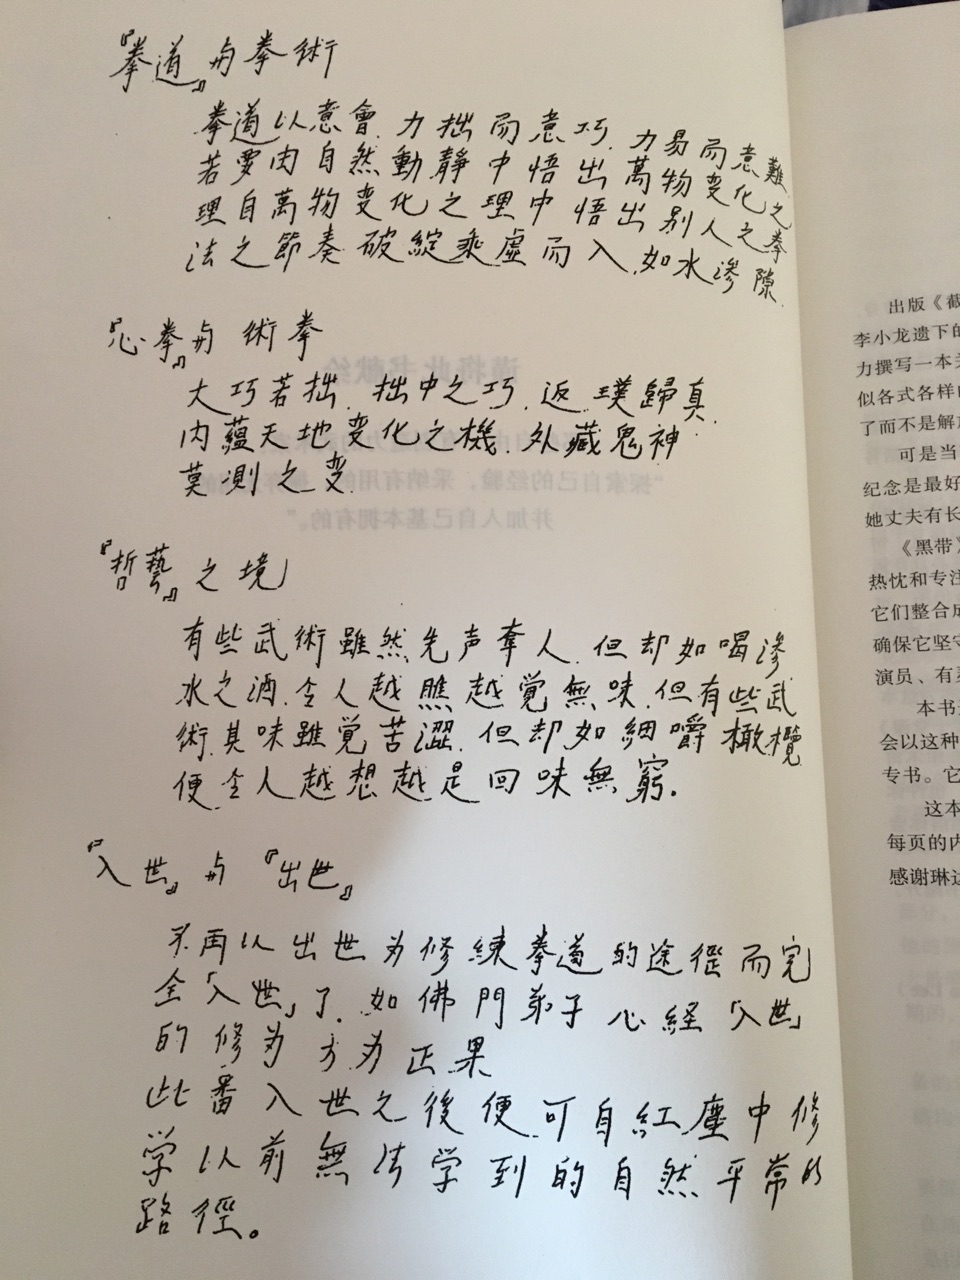 『拳道』与拳術
拳道以意會.力拙而意巧.力易而意難
若要由自然動靜中悟出萬物变化之
理自萬物变化之理中悟出别人之拳
法之節奏破綻乘虛而入.如水渗隙.
『心拳』与術拳
大巧若拙.拙中之巧.返璞歸真.
内蘊天地变化之機.外藏鬼神
莫測之变.
『哲藝』之境
有些武術雖然先声奪人.但却如喝渗
水之酒.令人越瞧越覚無味.但有些武
術.其味雖覚苦澀.但却如細嚼橄欖
便令人越想越是回味無窮.
『入世』与『出世』
不再以出世为修練拳道的途徑而完
全「入世」了.如佛門弟子心経「入世」
的修为方为正果
此番入世之後便可自紅塵中修
学以前無法学到的自然平常的
路徑。
出版《截
李小龙遗下的
力撰写一本关
似各式各样的
了而不是解放
可是当
纪念是最好
她丈夫有长
《黑带》
热忱和专注
它们整合成
确保它坚守
演员、有
本书
会以这种
专书。它
这本
每页的内
感谢琳达
谨将此书献给
“探索自己的经验，采纳有用的，
并加入自己基本拥有的。”